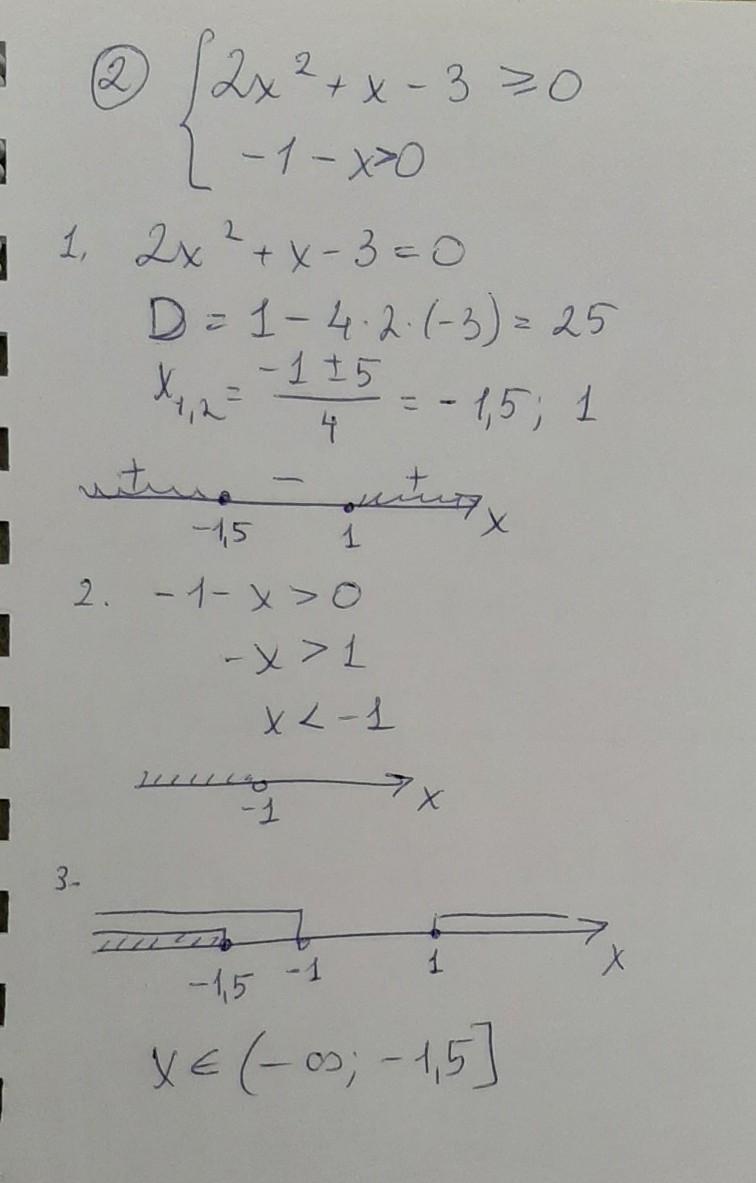 ② { 2x² + x - 3 ≥ 0
-1 - x > 0
1. 2x² + x - 3 = 0
D = 1 - 4 · 2 · (-3) = 25
x₁,₂ = (-1 ± 5)/4 = -1,5; 1
+ - +
-1,5 1 x
2. -1 - x > 0
-x > 1
x < -1
-1 x
3.
-1,5 -1 1 x
x ∈ (-∞; -1,5]